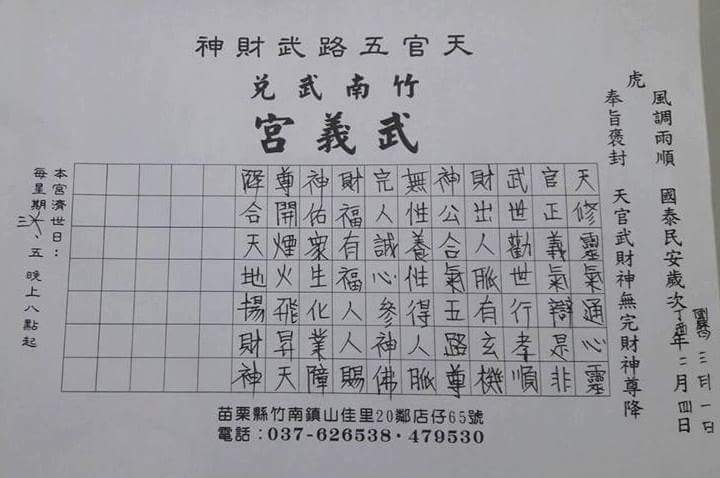 天官五路武財神
竹南武兌
武義宮
風調雨順 國泰民安歲次丁酉年二月四日
國曆三月一日
虎
奉旨褒封 天官武財神無完財神尊降
天修靈氣通心靈
官正義氣辯是非
武世勸世行孝順
財出人脈有玄機
神公合氣五路尊
無性養性得人脈
完人誠心參神佛
財福有福人人賜
神佑眾生化業障
尊開煙火飛昇天
降合天地揚財神
本宮濟世日：
每星期三、五 晚上八點起
苗栗縣竹南鎮山佳里20鄰店仔65號
電話：037-626538・479530